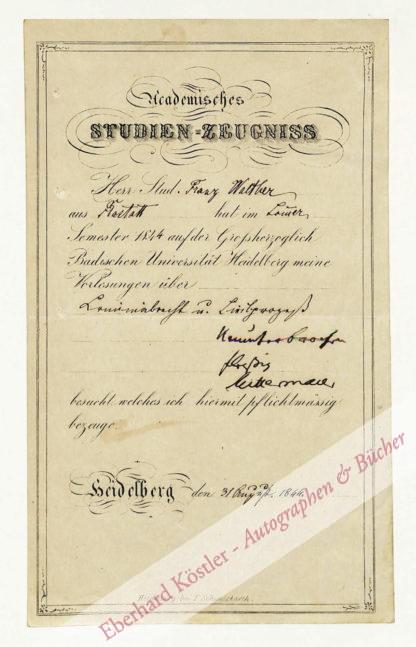 Academisches
STUDIEN-ZEUGNISS
Herr Stud. Franz Walther
aus Rastatt hat im Somer
Semester 1844 auf der Großherzoglich
Badischen Universität Heidelberg meine
Vorlesungen über
Criminalrecht u. Civilprozeß
ununterbrochen
fleißig
Mittermaier
besucht, welches ich hiermit pflichtmässig
bezeuge.
Heidelberg den 31 August 1844.
Eberhard Köstler - Autographen & Bücher